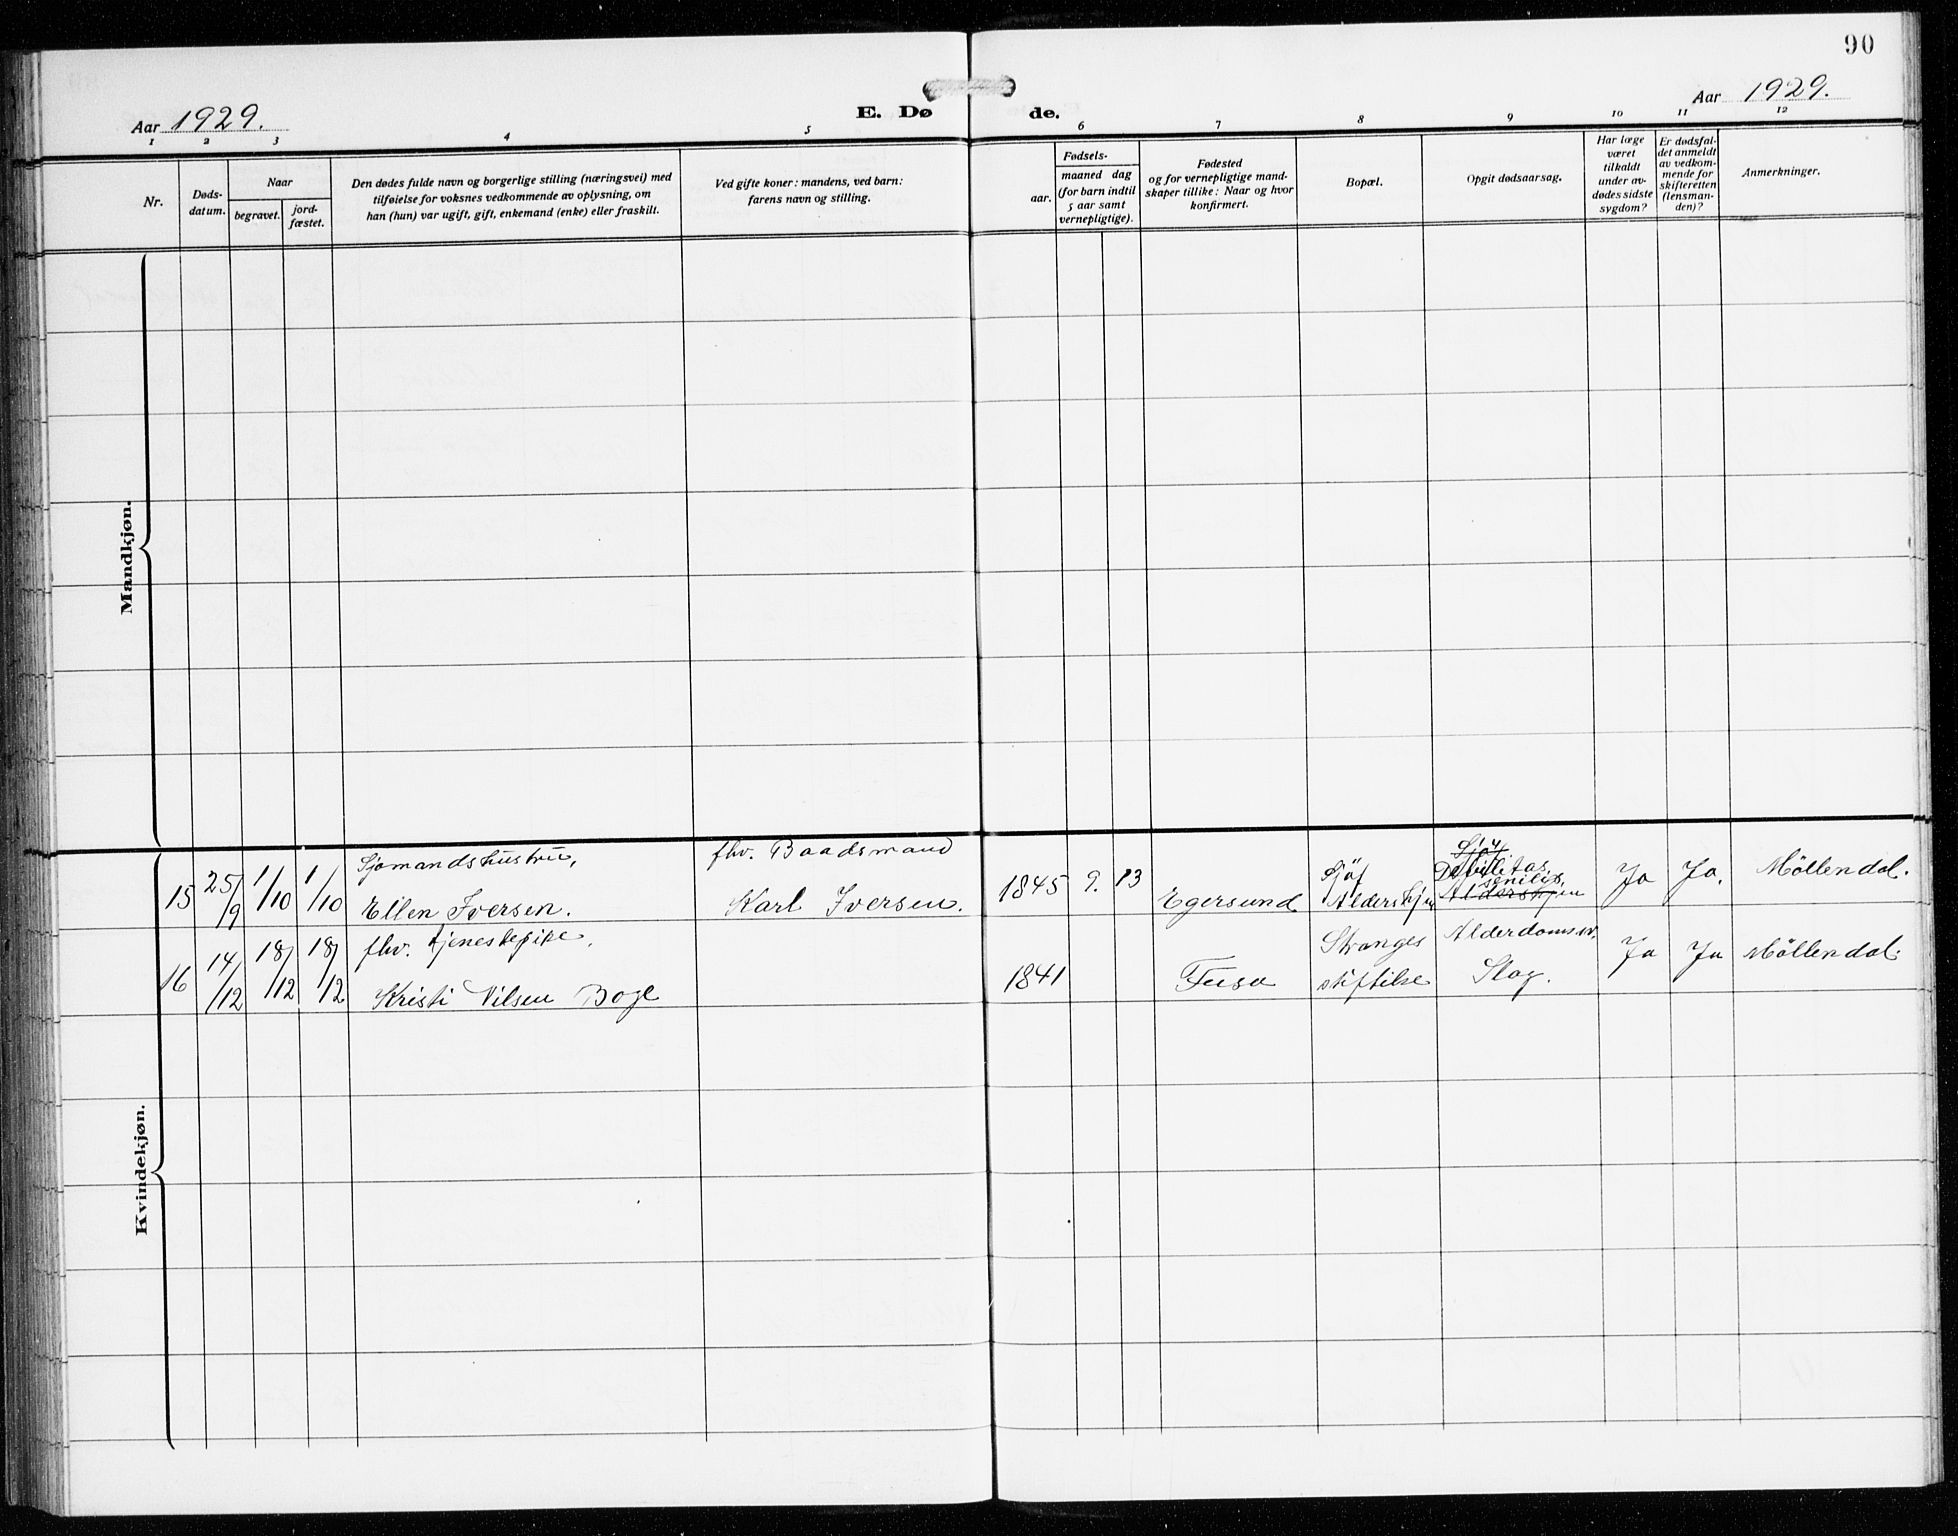 90
Aar 1929.
E. Dø de.
Aar 1929.
1 2 3 4 5 6 7 8 9 10 11 12
Nr.
Døds-
datum.
Naar
begravet.
jord-
fæstet.
Den dødes fulde navn og borgerlige stilling (næringsvei) med
tilføielse for voksnes vedkommende av oplysning, om
han (hun) var ugift, gift, enkemand (enke) eller fraskilt.
Ved gifte koner: mandens, ved barn:
farens navn og stilling.
Fødsels-
aar.
maaned dag
(for barn indtil
5 aar samt
vernepligtige).
Fødested
og for vernepligtige mand-
skaper tillike: Naar og hvor
konfirmert.
Bopæl.
Opgit dødsaarsag.
Har læge
været
tilkaldt
under av-
dødes sidste
sygdom?
Er dødsfal-
det anmeldt
av vedkom-
mende for
skifteretten
(lensman-
den)?
Anmerkninger.
Mandkjøn.
Kvindekjøn.
15
25/9
1/10
1/10
Sjømandshustru,
Ellen Iversen.
fhv. Baadsmand
Karl Iversen.
1845 9. 13
Egersund
Sjöf
Aldershjem
Sjöf
Debilitas
senilis.
Aldershjem
Ja
Ja.
Möllendal.
16
14/12
18/12
18/12
fhv. tjenestepike,
Kristi Nilsen Boge
1841
Fusa
Stranges
stiftelse
Alderdomssv.
Slag.
Ja
Ja
Möllendal.